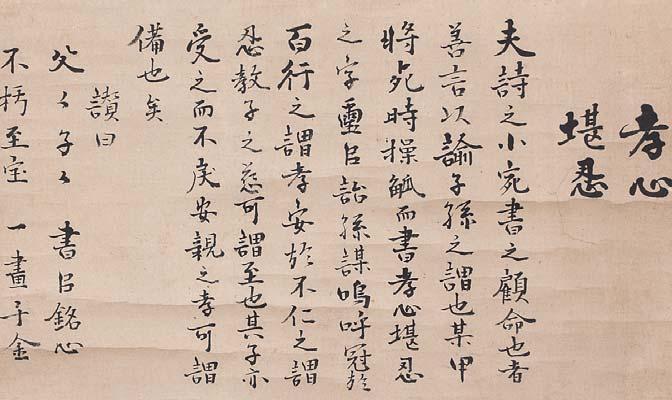 孝心
堪忍
夫詩之小宛書之顧命也者
善言以諭子孫之謂也某甲
將死時操觚而書孝心堪忍
之字璽㠯詒孫謀嗚呼冠於
百行之謂孝安於不仁之謂
忍教子之慈可謂至也其子亦
受之而不戾安親之孝可謂
備也矣
讃曰
父々子々 書㠯銘心
不朽至宝 一畫千金